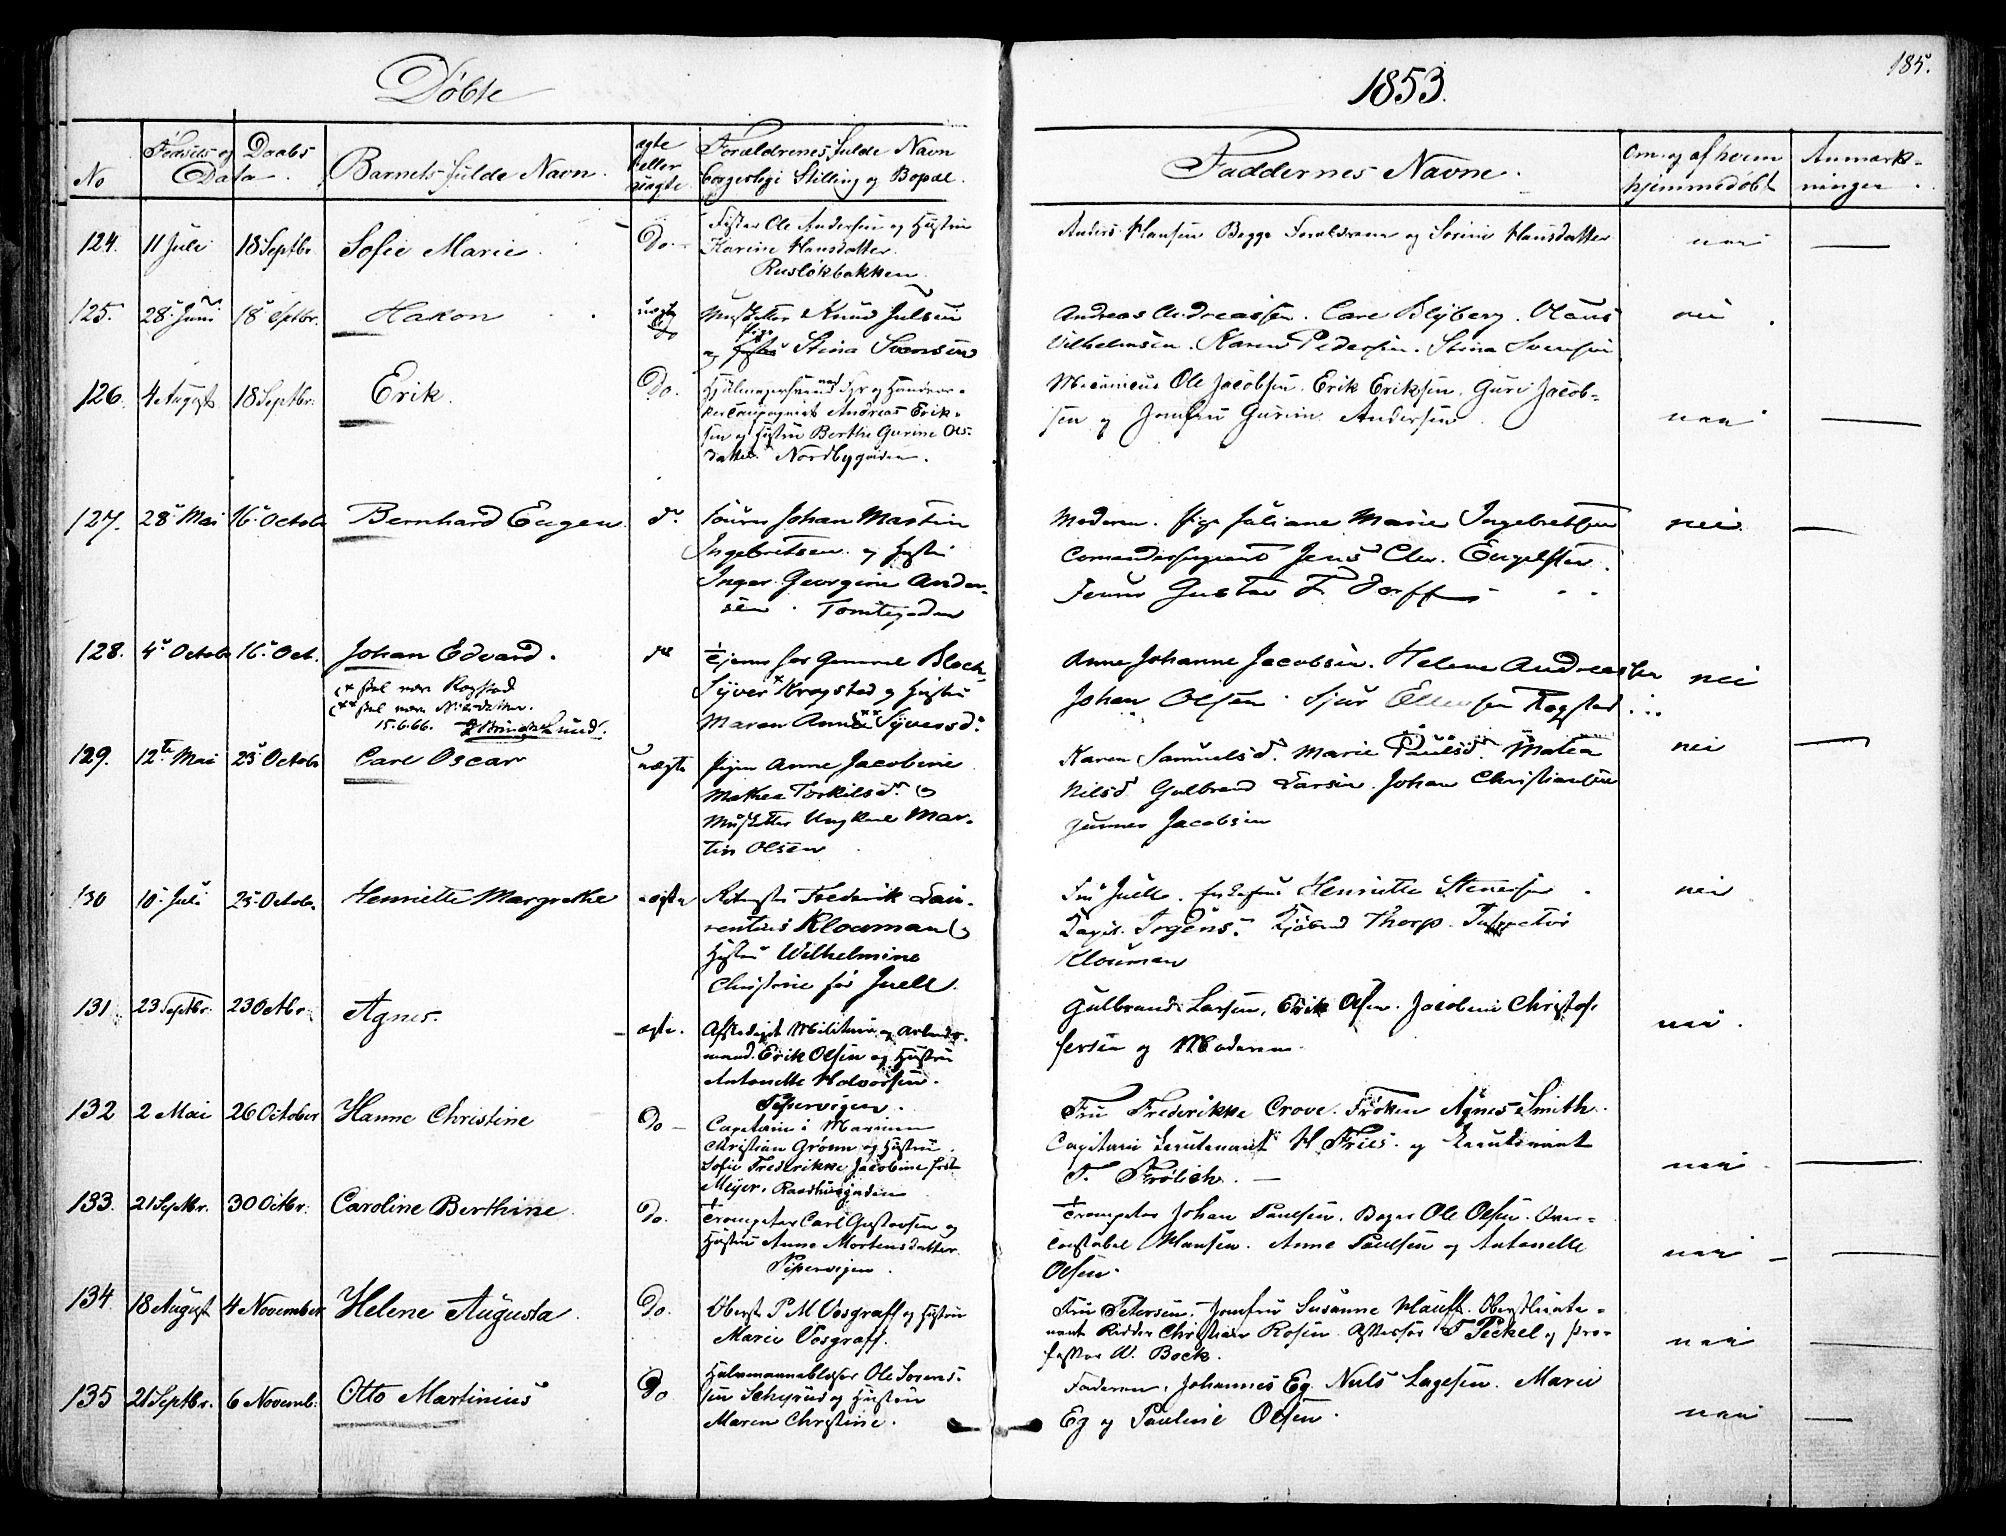 Döbte
1853.
185.
No
Fødsels og Daabs
Data.
Barnets fulde Navn.
ægte
eller
uægte.
Forældrenes fulde Navn
borgerlige Stilling og Bopæl.
Faddernes Navne.
Om og af hvem
hjemmedöbt
Anmærk-
ninger.
124. 11 Juli 18 Septbr. Sofie Marie Do.
Ole Andersen og Hustru
Karine Hansdatter.
Rusløkbakken.
Anders Hansen Begge Forældrene og Sorine Hansdatter
nei
125. 28 Juni 18 Sptbr. Hakon uægte
Do
Musketter Knud Julsen
pige
og Hustru Stina Svensen
Andreas Andreassen. Carl Blyberg. Olaus
Vilhelmsen. Karen Pedersen. Stina Svensen
nei
126. 4 August 18 Septbr. Erik. Do.
kercompagniet Andreas Erik-
sen og Hustru Berthe Gurine Ols-
datter Nordbygaden.
Mecanicus Ole Jacobsen. Erik Eriksen. Guri Jacob-
sen og Jomfru Gurine Andersen
nei
127. 28 Mai 16 Octobr Bernhard Eugen do
Fourer Johan Martin
Ingebretsen og Hustru
Inger Georgine Ander-
sen. Tomtegaden
Moderen. Pige Juliane Marie Ingebretsen
Comandersergeant Jens Chr. Engelsten.
Fourer Gustav F. Dorff
nei.
128. 4 Octobr 16 Oct. Johan Edvard. do
(* skal være Kogstad
(** skal være Nilsdatter.
15.6.66. Lund.
Tjener hos General Block,
Syver * Krogstad og Hustru
Maren Anne ** Syversd.
Anne Johanne Jacobsen. Helene Andreassen
Johan Olsen. Sjur Ellensen Kogstad
nei
129. 12te Mai 23 Octobr Carl Oscar uægte
Pigen Anne Jacobine
Mathea Torkilsd. og
Musketter Ungkarl Mar-
tin Olsen
Karen Samuelsd. Marie Paulsd. Mathea
Nilsd. Gulbrand Larsen. Johan Christiansen
Gunner Jacobsen
nei
130 10 Juli 23 Octobr. Henriette Margrethe ægte
Frederik Lau-
rentius Klouman og
Hustru Wilhelmine
Christine før Juell.
Fru Juell. Henriette Stenersen
Capit. Irgens. Kjøbmd Thorp. Inspector
Klouman
nei
131 23 Septbr. 23 Octbr. Agnes. ægte.
Afskediget Militær og Arbeids-
mand. Erik Olsen og Hustru
Antonette Halvorsen.
Pipervigen.
Gulbrand Larsen, Erik Olsen. Jacobine Christof-
fersen og Moderen
nei.
132 2 Mai 26 October Hanne Christine Do
Capitain i Marinen
Christian Grønn og Hustru
Sofie Frederikke Jacobine født
Meyer. Raadhusgaden
Fru Frederikke Crove. Frøken Agnes Smith.
Capitain Leutenant H Fries. og Leutenant
T. Frölich.
nei
133. 21 Septbr. 30 Octbr. Caroline Berthine. Do.
Trompeter Carl Gustavsen og
Hustru Anne Mortensdatter
Pipervigen.
Trompeter Johan Paulsen. Bager Ole Olsen. Over-
constabel Hansen. Anne Paulsen og Antonette
Olsen.
nei
134 18 August 4 November Helene Augusta Do.
Oberst P M Vosgraff og Hustru
Marie Vosgraff.
Fru Petersen, Jomfru Susanne Hauff. Oberstleute-
nant Ridder Christian Rosen. Assessor F Peckel og Pro-
fessor W. Bock.
nei
135 21 Septbr. 6 Novemb. Otto Martinius Do
Ole Sorens-
sen Schyrud og Hustru
Maren Christine.
Faderen, Johannes Eg. Nils Lagesen. Marie
Eg og Pauline Olsen.
nei